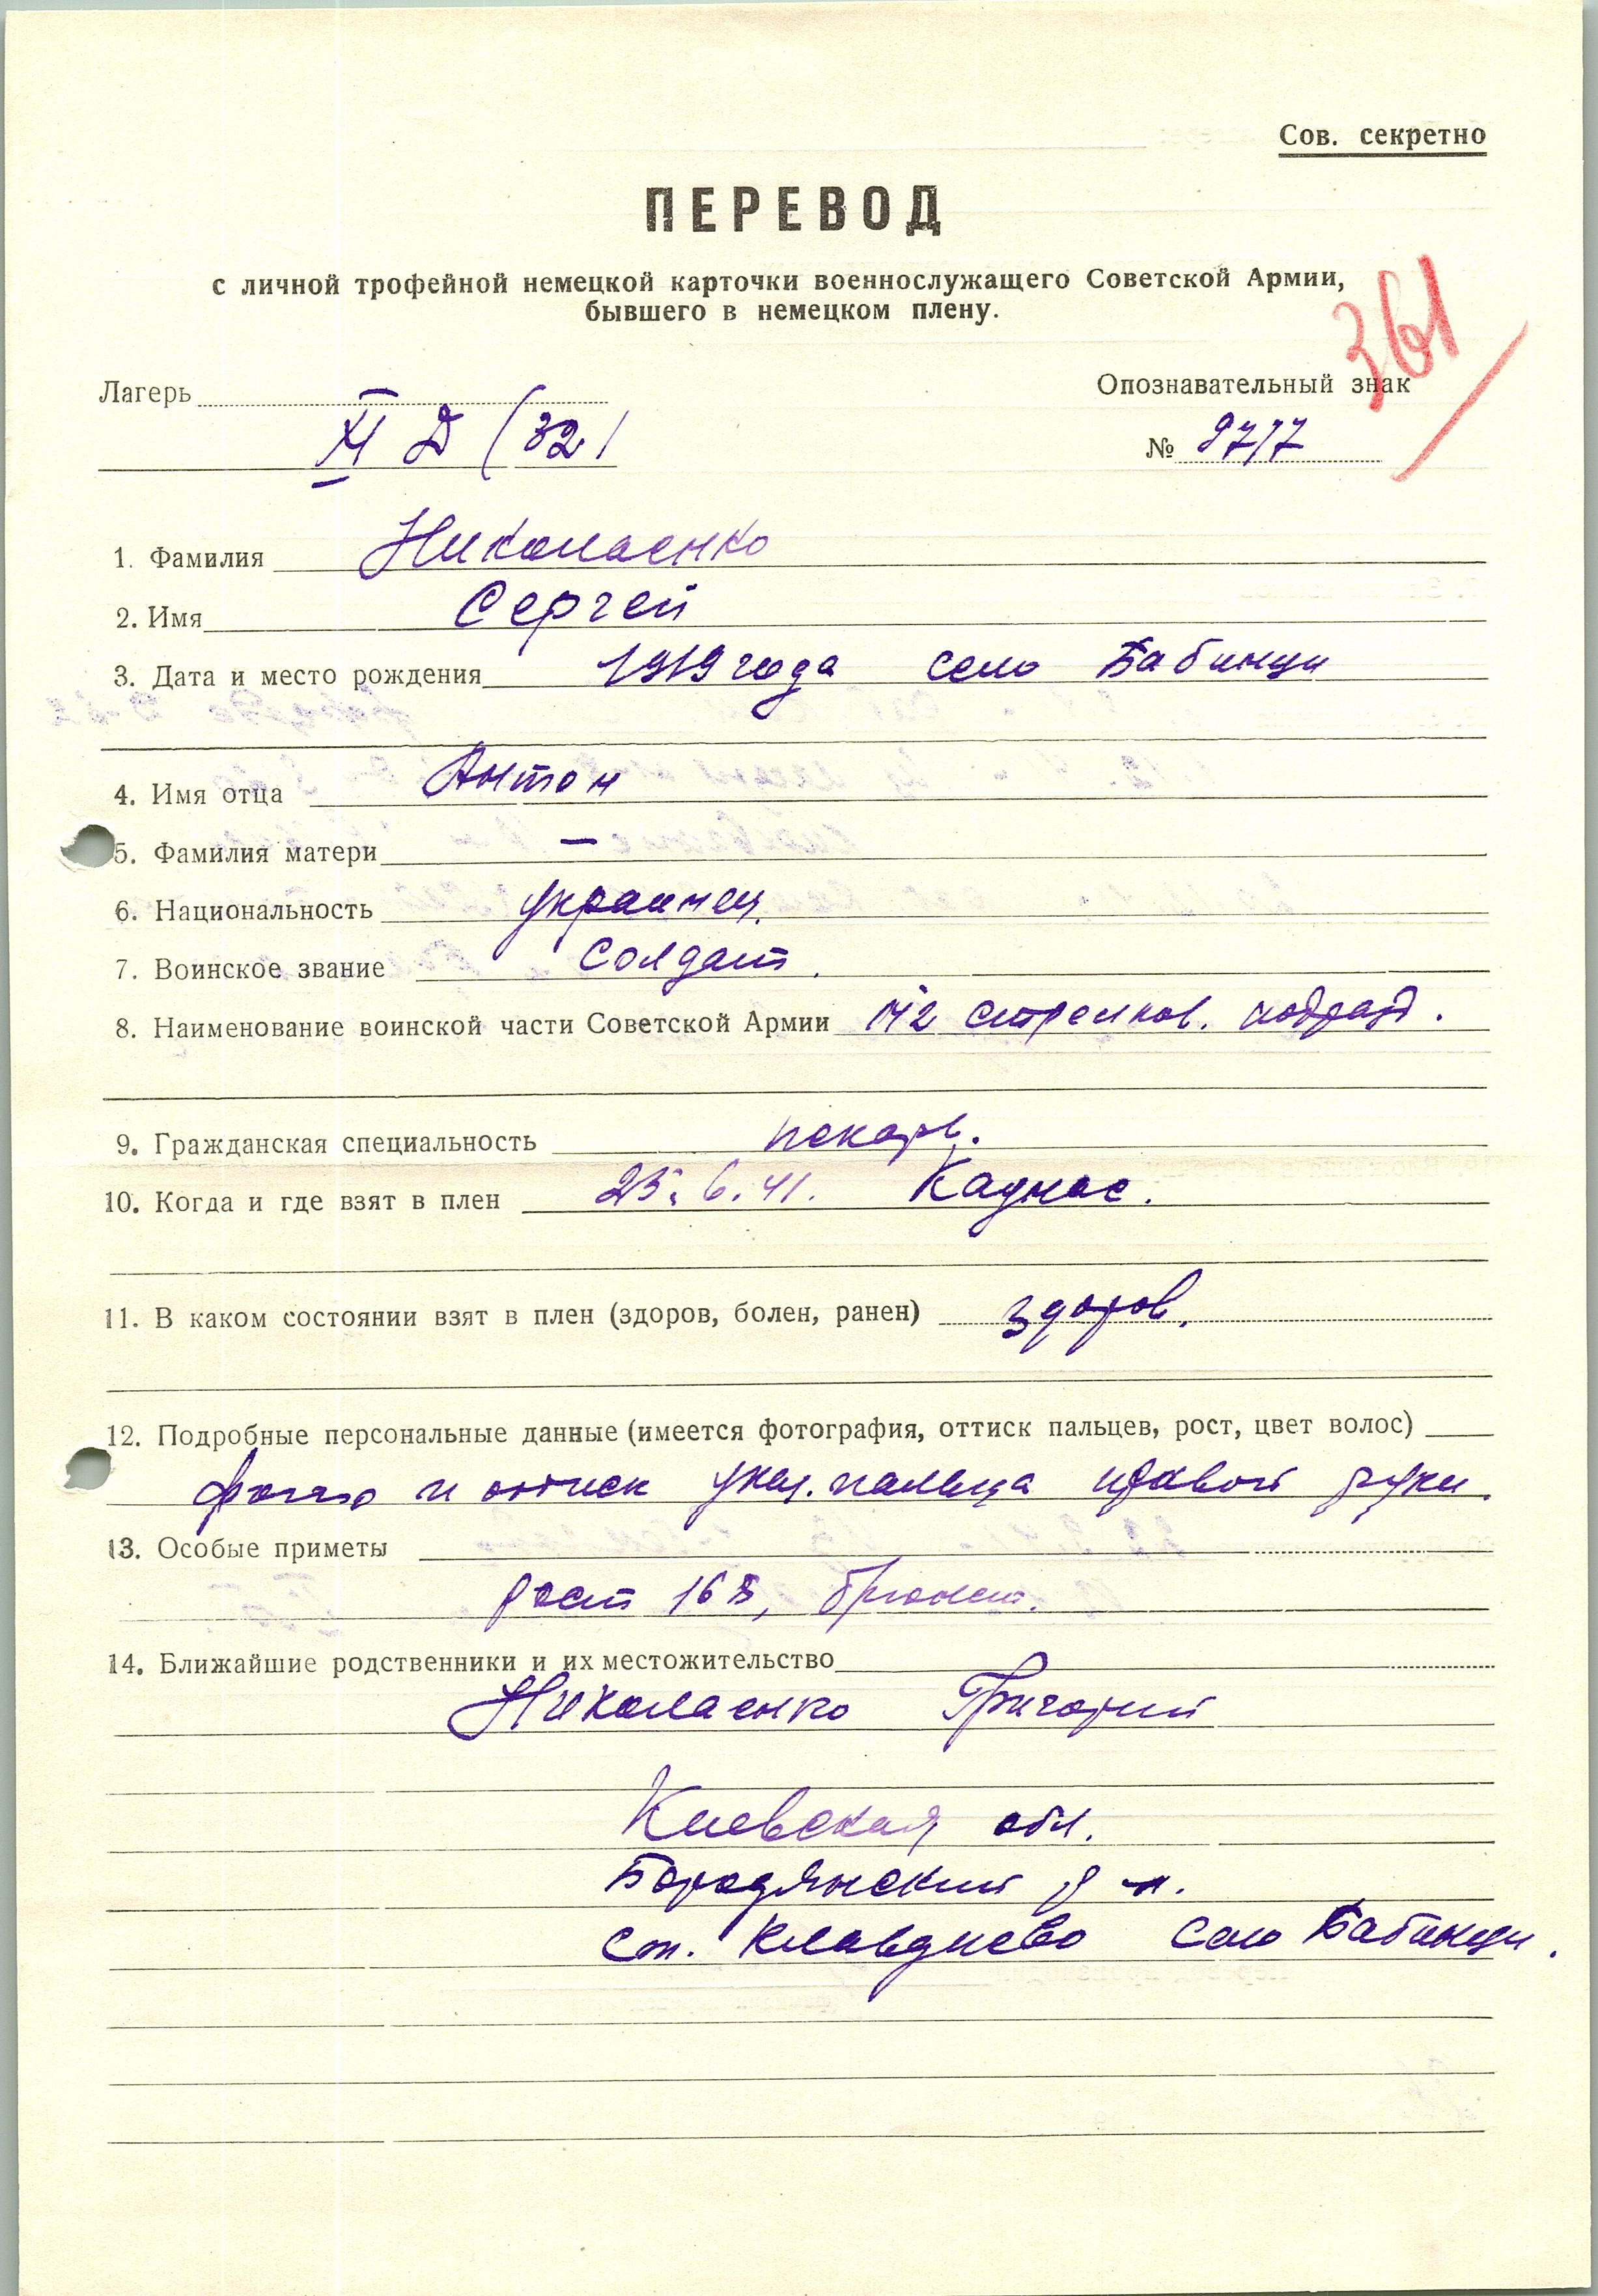 Сов. секретно
ПЕРЕВОД
с личной трофейной немецкой карточки военнослужащего Советской Армии,
бывшего в немецком плену.
361
Лагерь
XI D (321
Опознавательный знак
№ 9717
1. Фамилия Николаенко
2. Имя Сергей
3. Дата и место рождения 1919 года село Бабинци
4. Имя отца Антон
5. Фамилия матери —
6. Национальность украинец.
7. Воинское звание солдат.
8. Наименование воинской части Советской Армии стрелков. подразд.
9. Гражданская специальность пекарь.
10. Когда и где взят в плен 25.6.41. Каунас.
11. В каком состоянии взят в плен (здоров, болен, ранен) здоров.
12. Подробные персональные данные (имеется фотография, оттиск пальцев, рост, цвет волос)
фото и оттиск указ. пальца правой руки.
13. Особые приметы
рост 168, брюнет.
14. Ближайшие родственники и их местожительство
Николаенко Григорий
Киевская обл.
Бородянский р-н.
ст. Клавдиево село Бабинци.